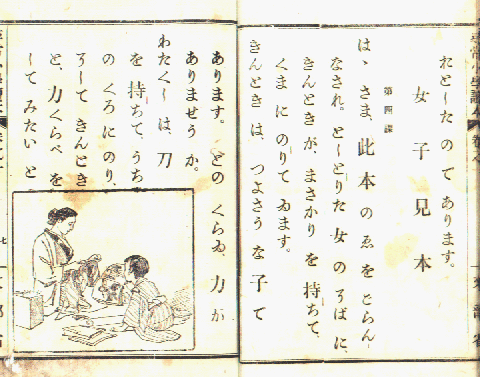 おとしたのであります。
女 子 兄 本
第四課
はゝさま、此本のゑをごらん
なされ。としとりた女のそばに、
きんときが、まさかりを持ちて、
くまにのりてゐます。
きんときは、つよさうな子で
あります。どのくらゐ、力が
ありませうか。
わたくしは、刀
を持ちて、うち
のくろにのり、
そしてきんとき
と、力くらべを
してみたいと
七